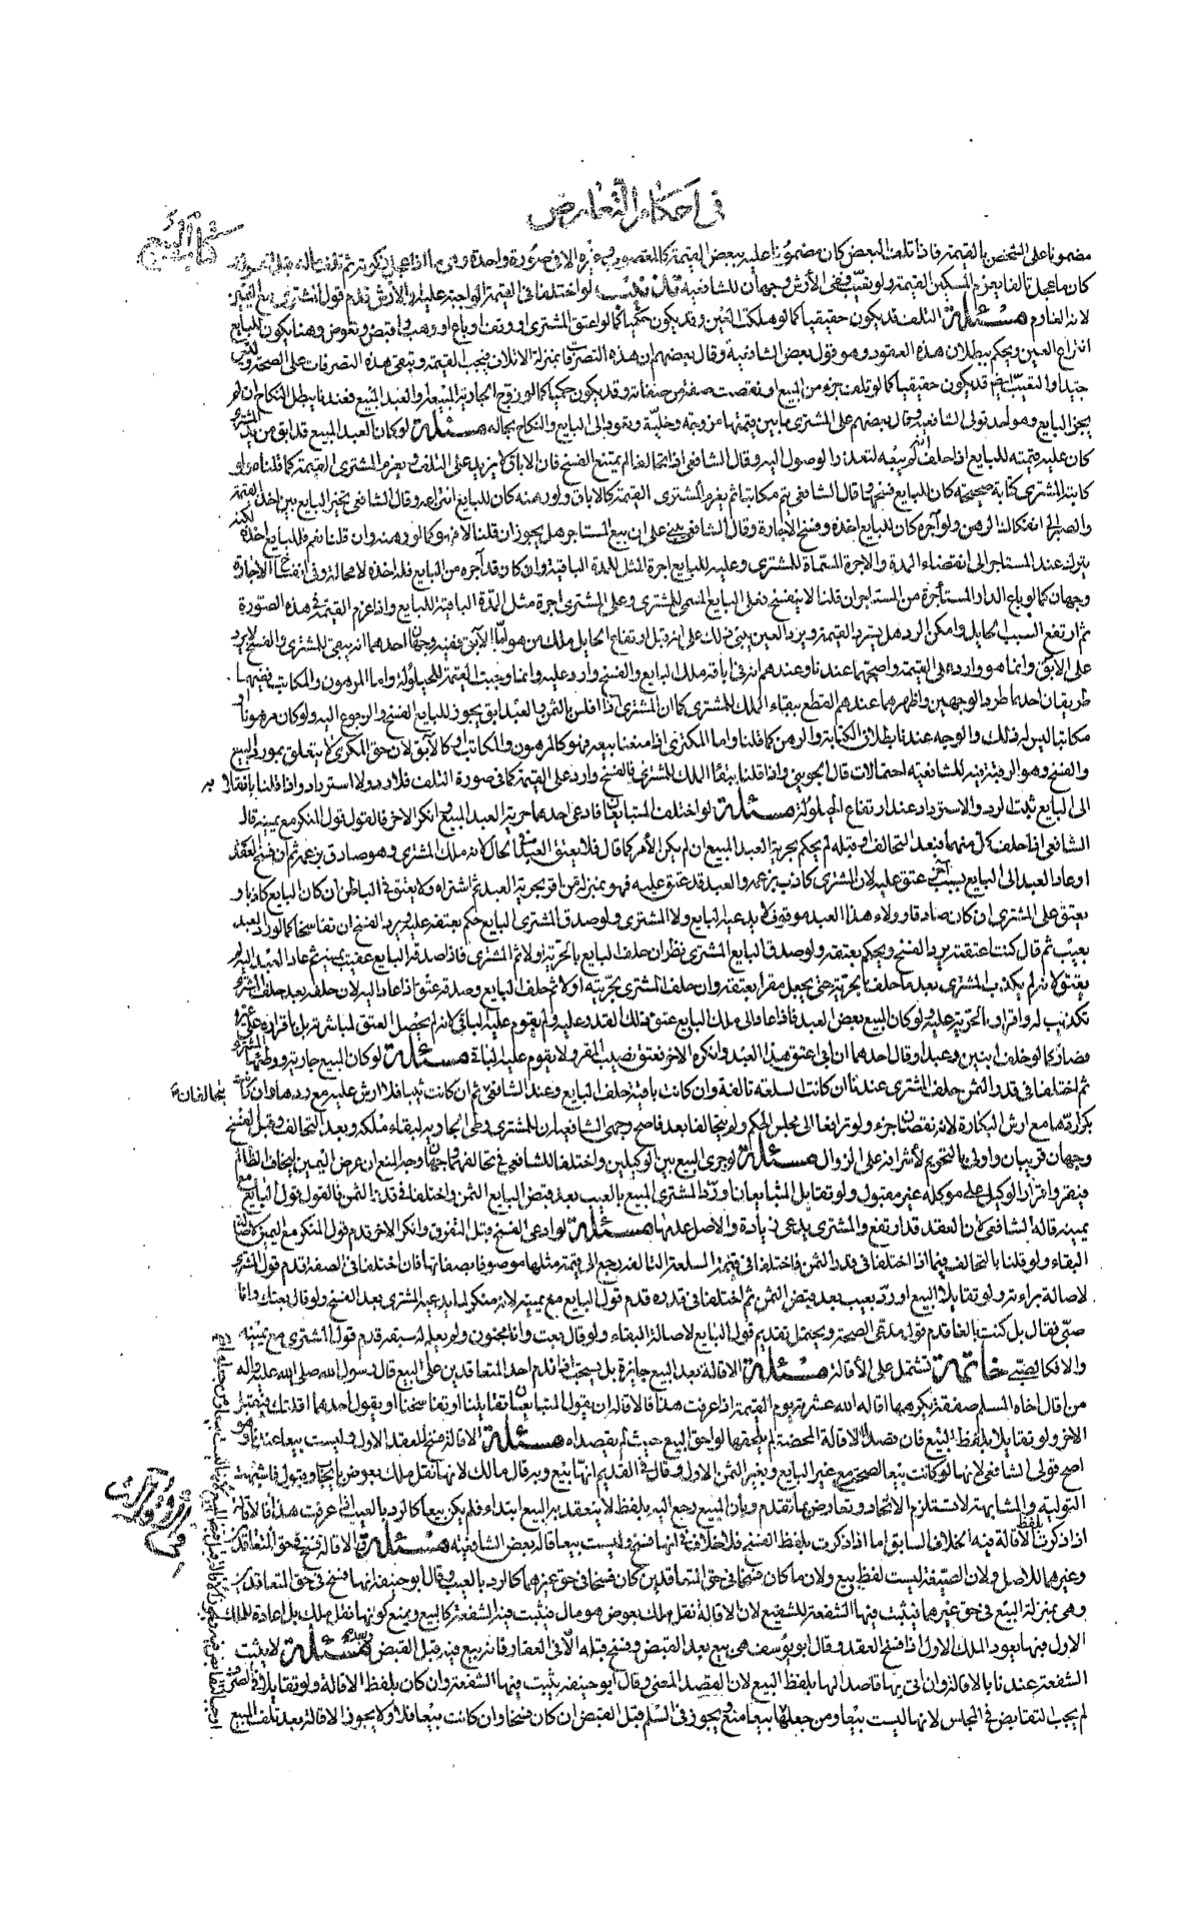 في احكام التعارض
كتاب البيع
مضمونا على الشخص بالقيمة فاذا تلف البعض كان مضمونا عليه ببعض القيمة كالمغصوب وغيره الا في صورة واحدة وهي ما اذا
لانه الغارم مسئلة التلف قد يكون حقيقيا كما لو هلكت العين وقد يكون حكميا كما لو اعتق المشترى او وقف او باع او وهب واقبض وتعوض وهنا يكون للبايع
انتزاع العين ويحكم ببطلان هذه العقود وهو قول بعض الشافعية وقال بعضهم ان هذه التصرفات بمنزلة الاتلاف فيجب القيمة وتبقى هذه التصرفات على الصحة
قد يكون حقيقيا كما لو تلف جزء من المبيع او نقصت صفة من صفاته وقد يكون حكميا كما لو زوج الجارية المبيعة او العبد المبيع فعندنا يبطل النكاح ان لم
يجز البايع وهو احد قولى الشافعية وقال بعضهم على المشترى ما بين قيمتها مزوجة وخلية وتعود الى البايع والنكاح بحاله مسئلة لو كان العبد المبيع قد ابق من يد المشترى
كان عليه قيمته للبايع اذا حلف انه لم يبعه لتعذر الوصول اليه وقال الشافعى اذا تحالفا لم يمتنع الفسخ فان الاباق لا يزيد على التلف ويغرم المشترى القيمة كما قلناه ولو
كاتبه المشترى كتابة صحيحة كان للبايع فسخها وقال الشافعى يتم مكاتبا ثم يغرم المشترى القيمة كالاباق ولو رهنه كان للبايع انتزاعه وقال الشافعى يخير البايع بين اخذ القيمة
والصبر الى انفكاك الرهن ولو آجره كان للبايع اخذه وفسخ الاجارة وقال الشافعى يبنى على ان بيع المستاجر هل يجوز ان قلنا لا فهو كما لو رهنه وان قلنا نعم فللبايع اخذه لكنه
يترك عند المستاجر الى انقضاء المدة والاجرة المسماة للمشترى وعليه للبايع اجرة المثل للمدة الباقية وان كان قد آجره من البايع فله اخذه لا محالة وفى انفساخ الاجارة
وجهان كما لو باع الدار المستأجرة من المستاجر ان قلنا لا ينفسخ فعلى البايع المسمى للمشترى وعلى المشترى اجرة مثل المدة الباقية للبايع واذا غرم القيمة في هذه الصورة
ثم ارتفع السبب الحايل وامكن الرد هل يسترد القيمة ويرد العين يبنى ذلك على انه قبل ارتفاع الحايل ملك من هو اما الآبق ففيه وجهان احدهما انه يبقى للمشترى والفسخ لا يرد
على الآبق وانما هو وارد على القيمة واصحهما عندنا وعندهم انه في اباقه ملك البايع والفسخ وارد عليه وانما وجبت القيمة للحيلولة واما المرهون والمكاتب ففيهما
طريقان احدهما طرد الوجهين واظهرهما عندهم القطع ببقاء الملك للمشترى كما ان المشترى اذا افلس بالثمن والعبد آبق يجوز للبايع الفسخ والرجوع اليه ولو كان مرهونا او
مكاتبا ليس له ذلك والوجه عندنا بطلان الكتابة والرهن كما قلنا واما المكترى اذا منعنا بيعه فهو كالمرهون والمكاتب او كالآبق لان حق المكترى لا يتعلق بمورد البيع
والفسخ وهو الرقبة فيه للشافعية احتمالات قال الجوينى واذا قلنا ببقاء الملك للمشترى فالفسخ وارد على القيمة كما في صورة التلف فلا رد ولا استرداد واذا قلنا بانقلابه
الى البايع ثبت الرد والاسترداد عند ارتفاع الحيلولة مسئلة لو اختلف المتبايعان فادعى احدهما حرية العبد المبيع وانكر الاخر فالقول قول المنكر مع يمينه قاله
الشافعى اذا حلف كل منهما فبعد التحالف او قبله لم يحكم بحرية العبد المبيع ان لم يكن الامر كما قال فلا يعتق العبد في الحال لانه ملك المشترى وهو صادق بزعمه ثم ان فسخ العقد
او عاد العبد الى البايع بسبب آخر عتق عليه لان المشترى كاذب بزعمه والعبد قد عتق عليه فهو بمنزلة من اقر بحرية العبد ثم اشتراه ولا يعتق في الباطن ان كان البايع كاذبا و
يعتق على المشترى ان كان صادقا وولاء هذا العبد موقوف لا يدعيه البايع ولا المشترى ولو صدق المشترى البايع حكم بعتقه عليه ويرد الفسخ ان تفاسخا كما لو رد العبد
بعيب ثم قال كنت اعتقته يرد الفسخ ويحكم بعتقه ولو صدق البايع المشترى نظر ان حلف البايع بالحرية اولا ثم المشترى فاذا صدقه البايع عقيب يمينه ثم عاد العبد اليه لم
يعتق لانه لم يكذب المشترى بعد ما حلف بالحرية حتى يجعل مقرا بعتقه وان حلف المشترى بحريته اولا ثم حلف البايع وصدقه عتق اذا عاد اليه لان حلفه بعد حلف المشترى
تكذيب له واقرار بالحرية عليه ولو كان المبيع بعض العبد فاذا عاد الى ملك البايع عتق ذلك القدر عليه ولم يقوم عليه الباقى لانه لم يحصل العتق لمباشرته بل باقراره على غيره
فصار كما لو خلف ابنين وعبدا وقال احدهما ان ابى اعتق هذا العبد وانكره الاخر فعتق نصيب المقر ولا يقوم عليه الباقى مسئلة لو كان المبيع جارية ووطئها المشترى
ثم اختلفا في قدر الثمن حلف المشترى عندنا ان كانت السلعة تالفة وان كانت باقية حلف البايع وعند الشافعى يتحالفان ثم ان كانت ثيبا فلا ارش عليه مع ردها وان كانت
بكرا ردها مع ارش البكارة لانه نقصان جزء ولو ترافعا الى مجلس الحكم ولم يتحالفا بعد فاصح وجهى الشافعية ان للمشترى وطى الجارية لبقاء ملكه وبعد التحالف وقبل الفسخ
وجهان قريبان واولى بالتحريم لاشرافه على الزوال مسئلة لو جرى البيع بين الوكيلين واختلفا للشافعى في تحالفهما وجهان وجه المنع ان غرض اليمين ان يخاف الظالم
فيقر واقرار الوكيل على موكله غير مقبول ولو تقايل المتبايعان او رد المشترى المبيع بالعيب بعد قبض البايع الثمن واختلفا في قدر الثمن فالقول قول البايع مع
يمينه قاله الشافعى لان العقد قد ارتفع والمشترى يدعى زيادة والاصل عدمها مسئلة لو ادعى الفسخ قبل التفرق وانكر الاخر قدم قول المنكر مع اليمين لاصالة
البقاء ولو قلنا بالتحالف فيما اذا اختلفا في قدر الثمن فاختلفا في قيمة السلعة التالفة رجع الى قيمة مثلها موصوفا بصفاتها فان اختلفا في الصفة قدم قول المشترى
لاصالة براءته ولو تقايلا البيع او رد بعيب بعد قبض الثمن ثم اختلفا في قدره قدم قول البايع مع يمينه لانه منكر لما يدعيه المشترى بعد الفسخ ولو قال بعتك وانا
صبى فقال بل كنت بالغا قدم قول مدعى الصحة ويحتمل تقديم قول البايع لاصالة البقاء ولو قال بعت وانا مجنون ولم يعلم له سبقه قدم قول المشترى مع يمينه
والا فكالصبى خاتمة تشتمل على الاقالة مسئلة الاقالة بعد البيع جايزة بل يستحب اذا ندم احد المتعاقدين على البيع قال رسول الله صلى الله عليه واله
من اقال اخاه المسلم صفقة يكرهها اقاله الله عثرته يوم القيمة اذا عرفت هذا فالاقالة ان يقول المتبايعان تقايلنا او تفاسخنا او يقول احدهما اقلتك فيقبل
الاخر ولو تقايلا بلفظ البيع فان قصدا الاقالة المحضة لم يلحقها لواحق البيع حيث لم يقصداه مسئلة الاقالة فسخ للعقد الاول وليست بيعا عندنا وهو
اصح قولى الشافعى لانها لو كانت بيعا لصحت مع غير البايع وبغير الثمن الاول وقال في القديم انها بيع وبه قال مالك لانها نقل ملك بعوض بايجاب وقبول فاشبهت
التولية والمشابهة لا تستلزم الاتحاد وتعارض بما تقدم وبان المبيع رجع اليه بلفظ لا ينعقد به البيع ابتداء فلم يكن بيعا كالرد بالعيب اذا عرفت هذا فالاقالة
اذا ذكرت بلفظ الاقالة فيه الخلاف السابق اما اذا ذكرت بلفظ الفسخ فلا خلاف في انها فسخ وليست بيعا قاله بعض الشافعية مسئلة والاقالة فسخ في حق المتعاقدين
وغيرهما للاصل ولان الصيغة ليست لفظ بيع ولان ما كان فسخا في حق المتعاقدين كان فسخا في حق غيرهما كالرد بالعيب وقال ابو حنيفة انها فسخ في حق المتعاقدين
وهى بمنزلة البيع في حق غيرهما فيثبت فيها الشفعة للشفيع لان الاقالة نقل ملك بعوض هو مال فيثبت فيه الشفعة كالبيع ويمنع كونها نقل ملك بل اعادة للملك
الاول فيها يعود الملك الاول اذا فسخ العقد وقال ابو يوسف هى بيع بعد القبض وفسخ قبله الا في العقار فانه بيع فيه قبل القبض وبعده مسئلة لا يثبت
الشفعة عندنا بالاقالة وان اتى بها قاصدا لها بلفظ البيع لان القصد المعنى وقال ابو حنيفة يثبت فيها الشفعة وان كان بلفظ الاقالة ولو تقايلا في الصرف
لم يجب التقابض في المجلس لانها ليست بيعا ومن جعلها بيعا منع ويجوز في السلم قبل القبض ان كان فسخا وان كانت بيعا فلا ولا يجوز الاقالة بعد تلف المبيع